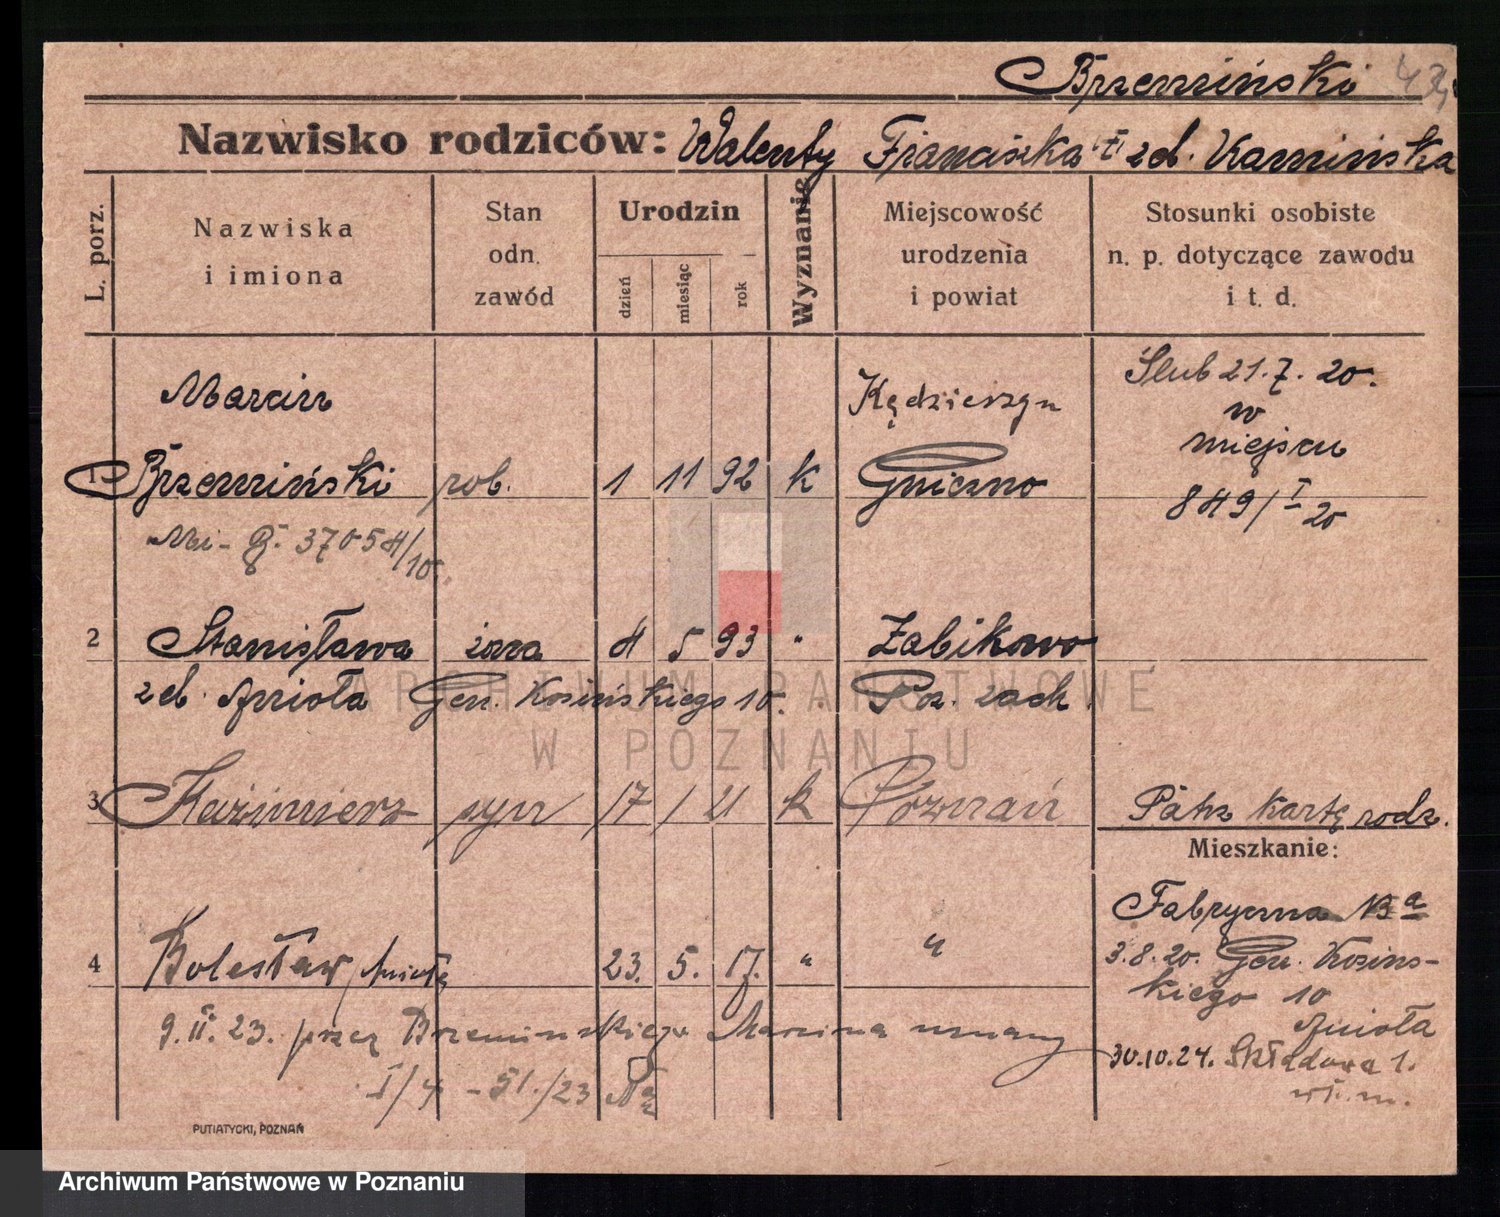 Brzemiński
Nazwisko rodziców: Walenty Franciszka I zd. Kamińska
L. porz.
Nazwiska
i imiona
Stan
odn.
zawód
Urodzin
dzień
miesiąc
rok
Wyznanie
Miejscowość
urodzenia
i powiat
Stosunki osobiste
n. p. dotyczące zawodu
i t. d.
Marcin
Kędzierzyn
Ślub 21.7.20.
w
miejscu
1 Brzemiński rob. 1 11 92 k Gniezno
849/I 20
37054/10
2 Stanisława żona 4 5 93 " Żabikowo
zd. Anioła Gen. Kosińskiego 10. Poz. zach
ARCHIWUM PAŃSTWOWE
W POZNANIU
3 Kazimierz syn 17 / 21 k Poznań Patrz kartę rodz.
Mieszkanie:
Fabryczna
4 Bolesław Anioła 23. 5. 17. " "
3.8.20. Gen. Kosińs-
kiego 10
Anioła
9.II.23. przez Brzemińskiego Marcina uznany
30.10.24. Składowa 1.
wł. m.
I/4 - 51./23
PUTIATYCKI, POZNAŃ
Archiwum Państwowe w Poznaniu